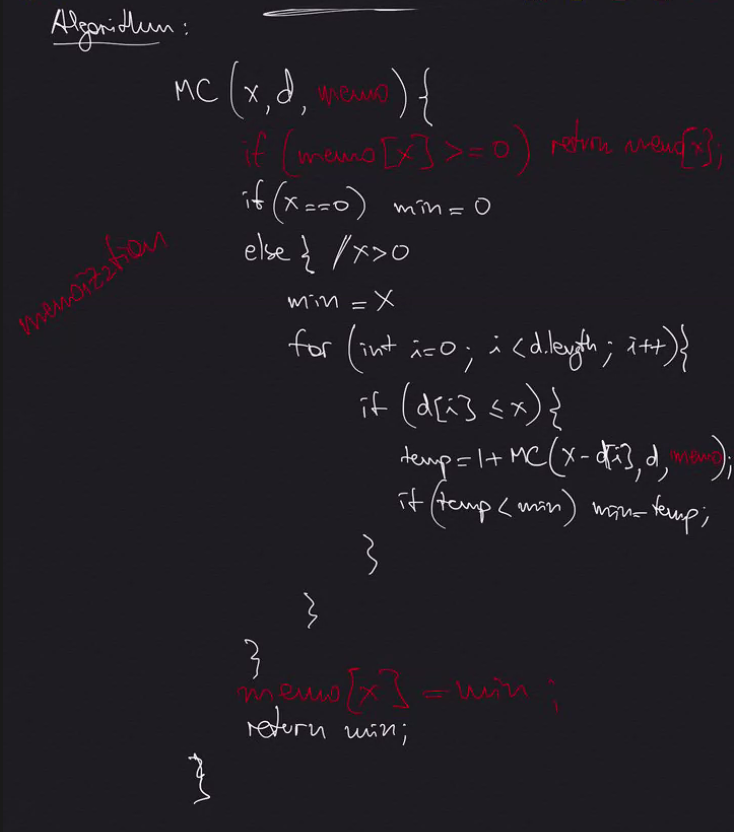 Algorithm:
MC (x, d, memo) {
if (memo[x] >= 0) return memo[x];
if (x==0) min = 0
else { //x>0
memoization
min = x
for (int i=0; i<d.length; i++){
if (d[i] ≤ x) {
temp = 1+ MC(x-d[i], d, memo);
if (temp < min) min=temp;
}
}
}
memo[x] = min;
return min;
}